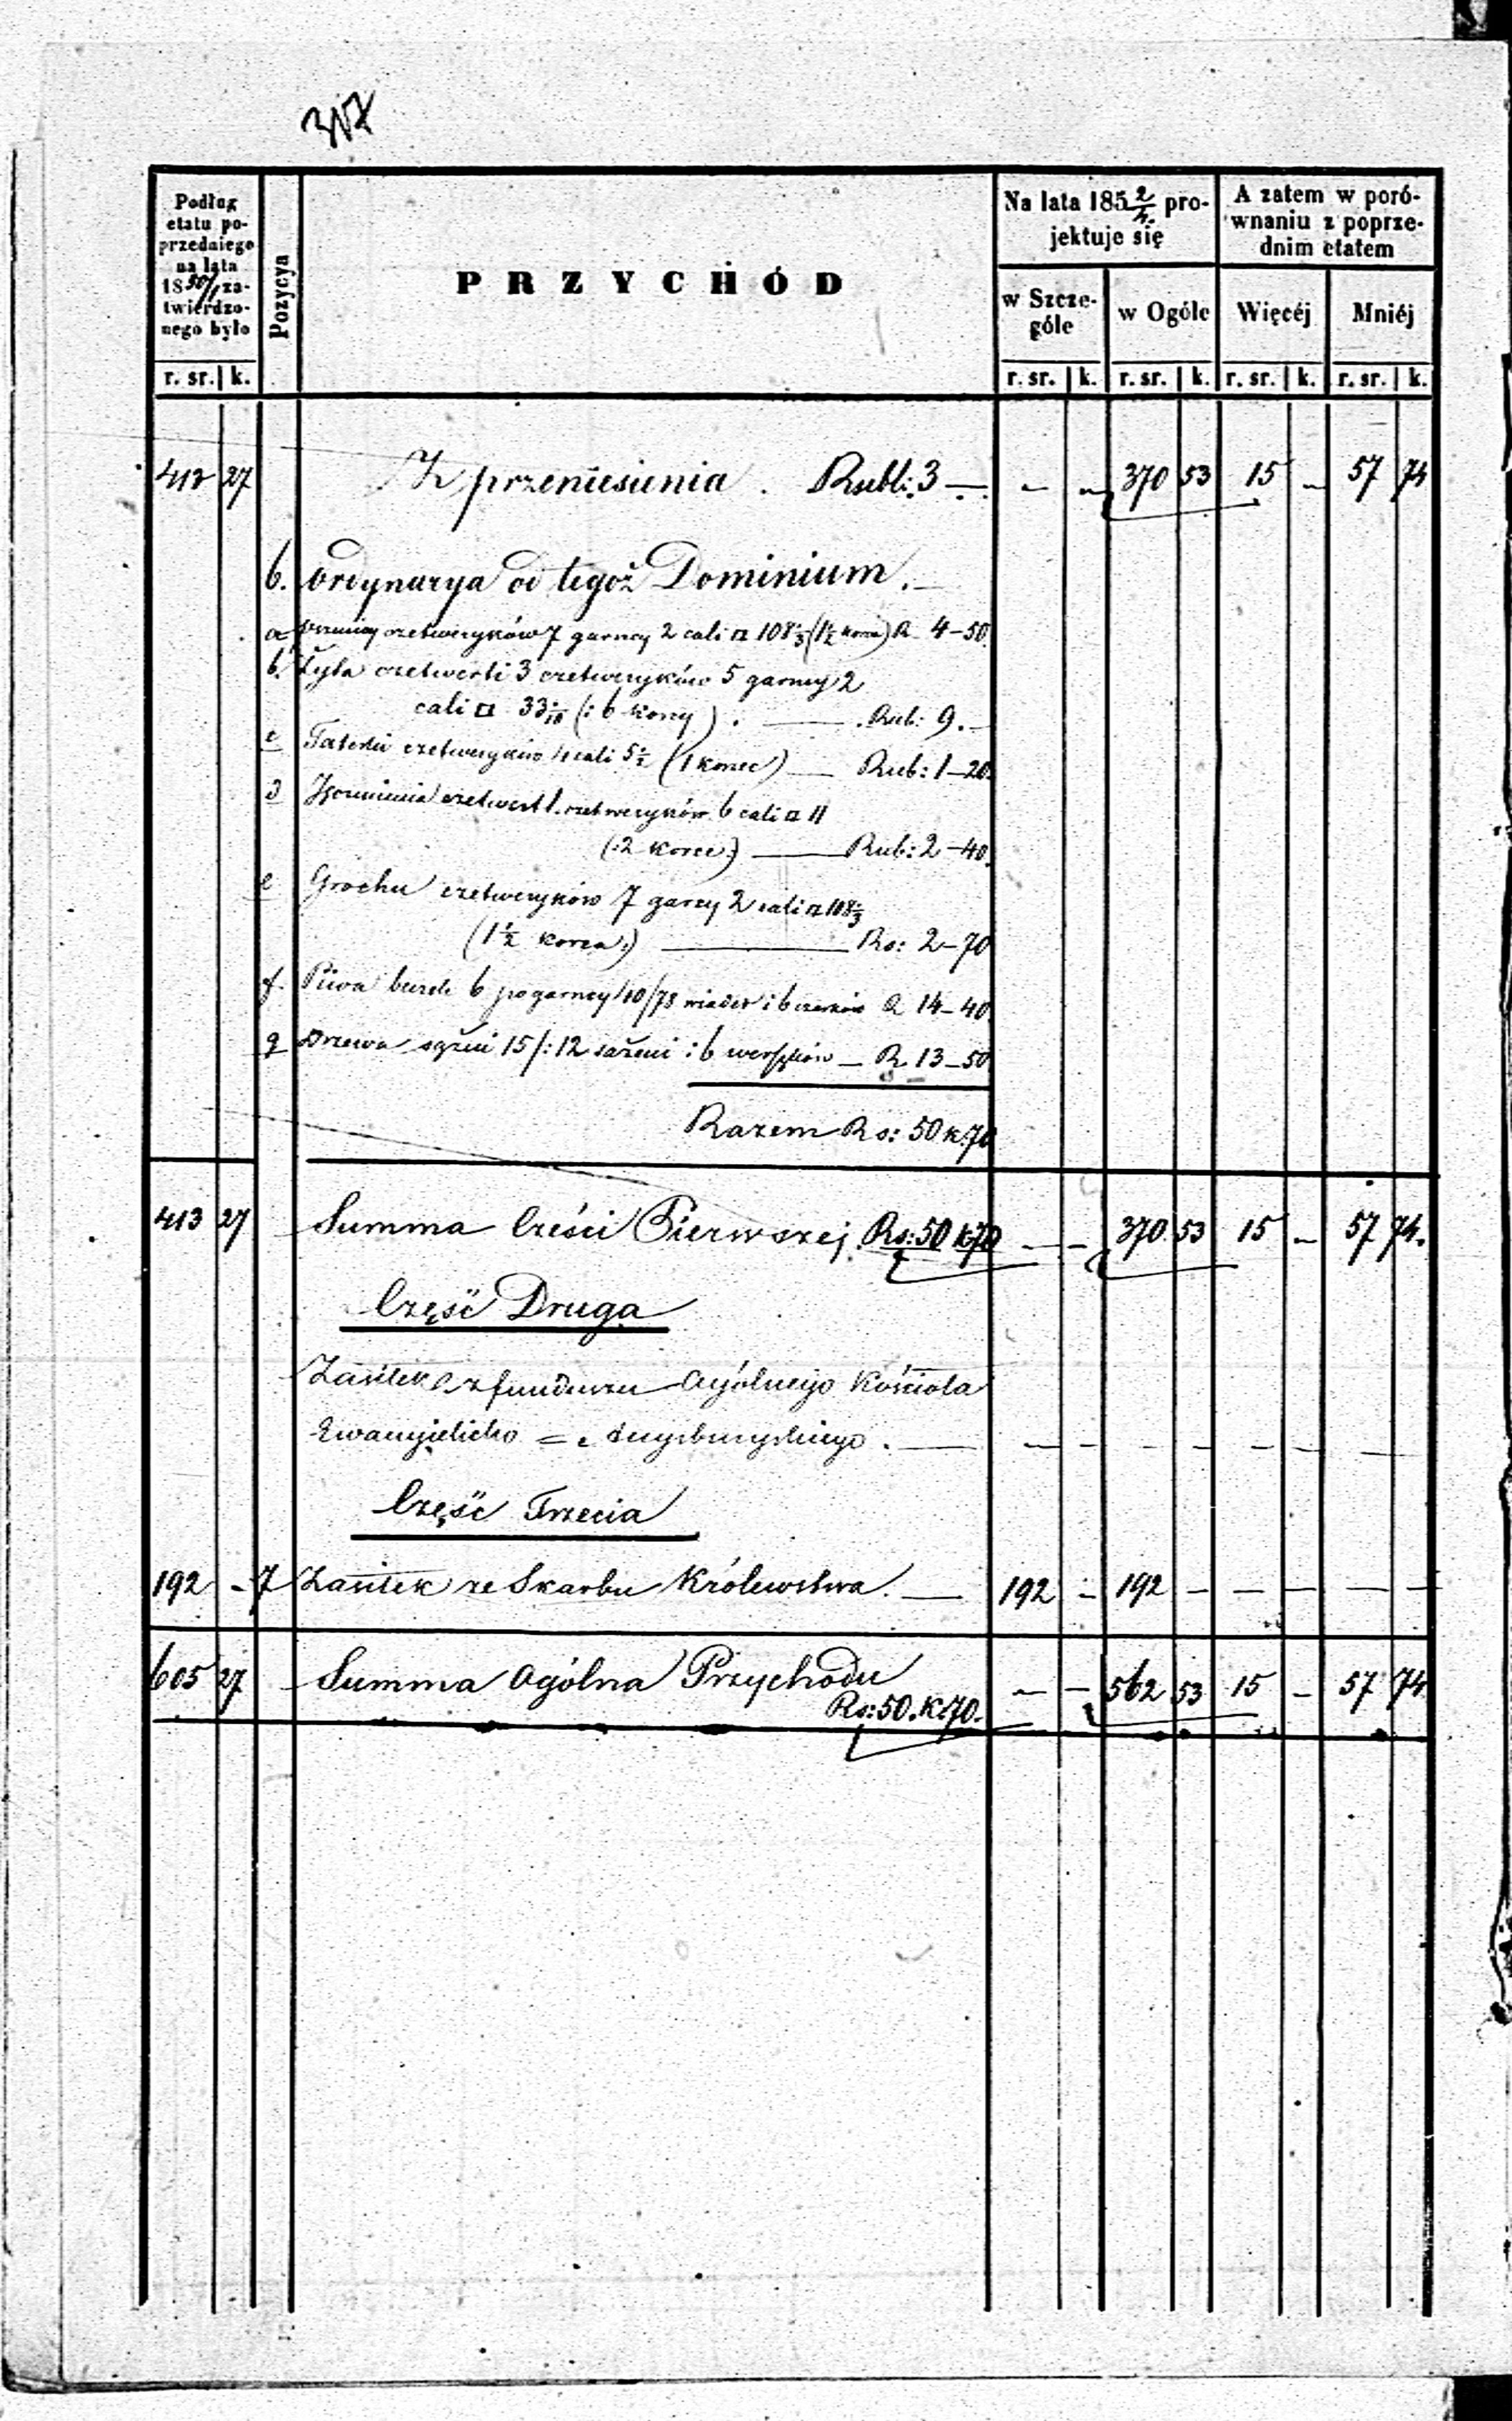 317
Podług
etatu po-
przedniego
na lata
1850/1 za-
twierdzo-
nego było
Pozycya
PRZYCHÓD
Na lata 185 2/4. pro-
jektuje się
A zatem w poró-
wnaniu z poprze-
dnim etatem
w Szcze-
góle
w Ogóle
Więcéj
Mniéj
r. sr. k. r. sr. k. r. sr. k. r. sr. k. r. sr. k.
27 Z przeniesienia . Rubl: 3 — – – 370 53 15 – 57 74
6. Ordynarya od tegoż Dominium . —
a pszenicy czetweryków 7 garncy 2 cali □ 108 1/3 (1 1/2 korca) R 4–50.
b. Żyta czetwerti 3 czetweryków 5 garncy 2
cali □ 33 /10 (: 6 korcy ) . — . Rub: 9. –
c Tatarki czetweryków 4 cali 5 1/2 (1 korzec) — Rub: 1–20.
d Jęczmienia czetwert 1. czetweryków 6 cali □ 11
(:2 korce:) — Rub: 2–40.
e Grochu czetweryków 7 garcy 2 cali □ 108 1/3
(1 1/2 korca:) — Rs: 2–70
f. Piwa beczek 6 po garncy 10/78 wiader i 6 R 14–40.
g Drzewa sążni 15 /: 12 sażeni : 6 werszków — R 13–50
Razem Rs: 50 k. 70
413 27 Summa Części Pierwszej Rs: 50 k 70 – – 370 53 15 – 57 74.
Część Druga
Zasiłek z funduszu Ogólnego Kościoła
Ewangielicko = Augsburgskiego . — – – – – – – – –
Część Trzecia
192 – 7 Zasiłek ze Skarbu Królewstwa. — 192 – 192 – – – – –
605 27 Summa Ogólna Przychodu – – 562 53 15 – 57 74
Rs: 50. K. 70.